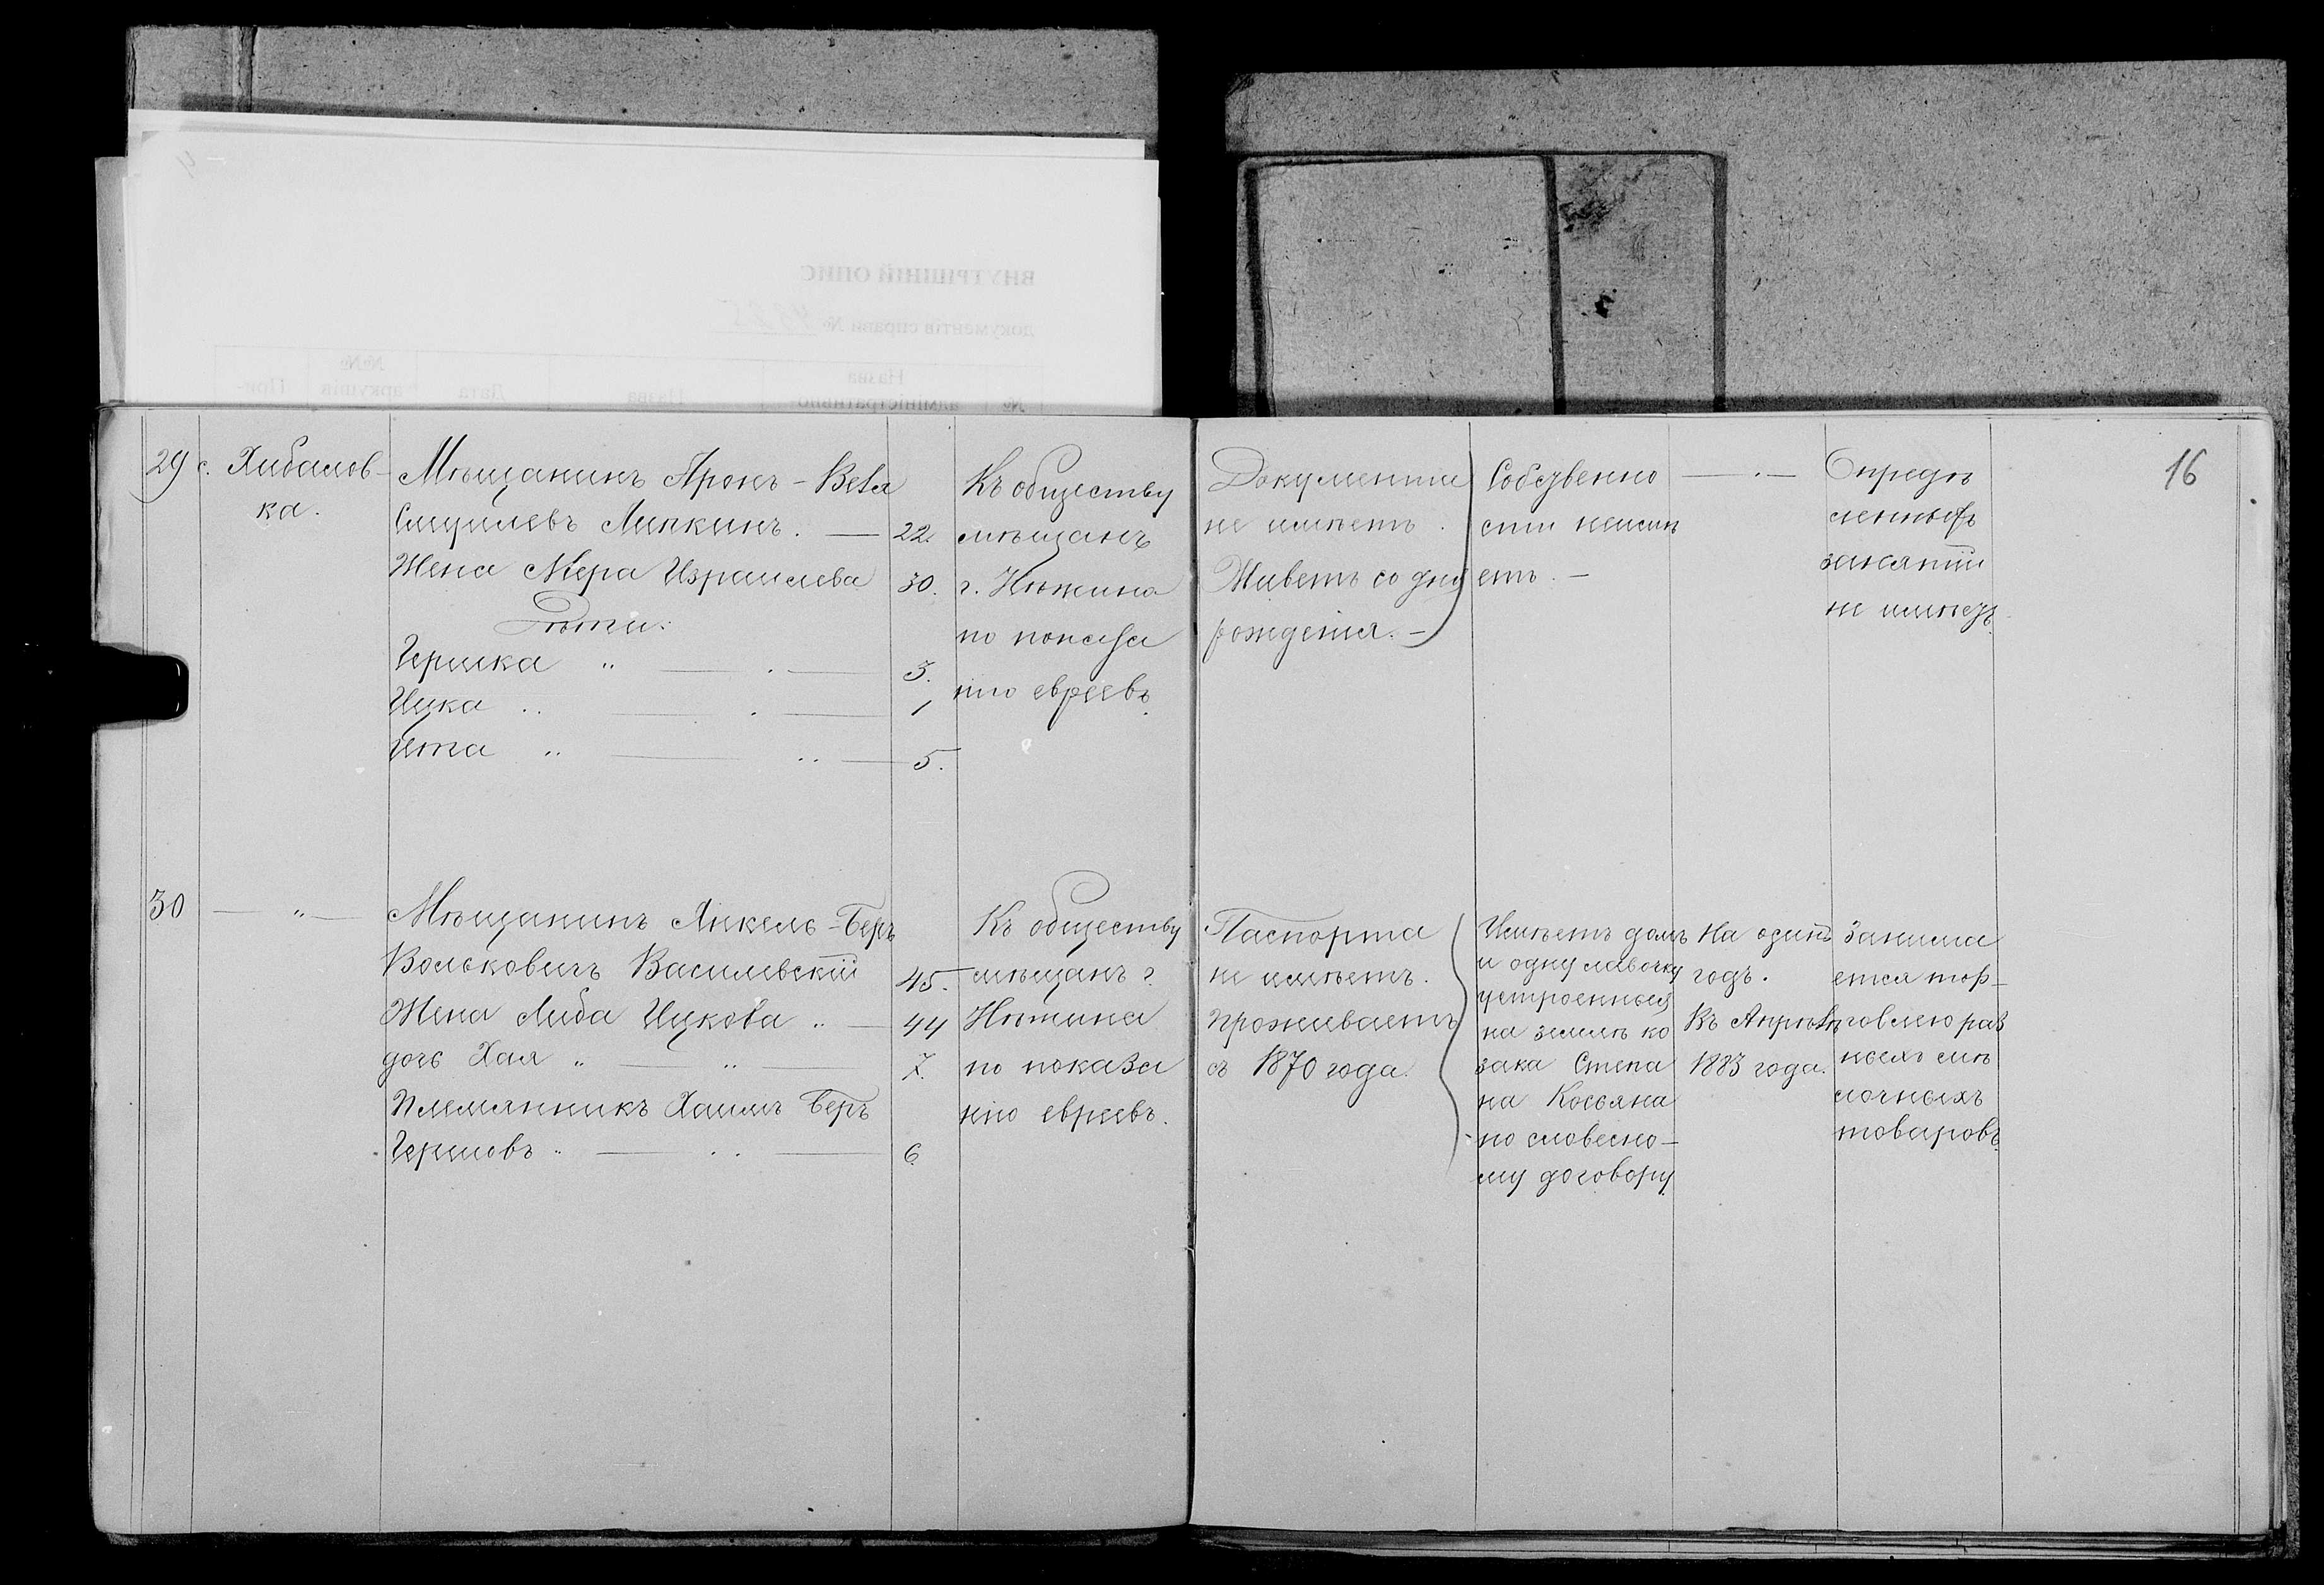 ВНУТРІШНІЙ ОПИС
документів справи №
№
Назва
адміністративно-
Назва
Дата
№№
аркушів
При-
16
29
с. Хибалов-
ка.
Мѣщанинъ Аронъ-
Липкинъ. — 22.
Жена Мера Израилева 30.
Дѣти:
Гершка " — . — 3.
Ицка .. — . — 1
Ита .. — .. — 5.
Къ обществу
мѣщанъ
г. Нѣжина
по показа
нію евреевъ.
Документа
не имѣетъ.
Живетъ со дня
рожденія. —
Собственно
сти неимѣ
етъ. —
— . —
Опредѣ
ленныхъ
занятій
не имѣетъ.
30
— " —
Мѣщанинъ Янкель-Беръ
Вольковичъ Василевскій 45.
Жена Либа Ицкова .. — 44
дочь Хая .. — .. — 7.
Племянникъ Хаимъ Беръ
Гершовъ .. — .. — 6
Къ обществу
мѣщанъ г.
Нѣжина
по показа
нію евреевъ.
Паспорта
не имѣетъ.
Проживаетъ
съ 1870 года.
Имѣетъ домъ
и одну лавочку
устроенныя
на землѣ ко
зака Степа
на Косьяна
по словесно-
му договору
На одинъ
годъ.
Къ Апрѣль
1883 года.
Занима
ется тор-
говлею раз
ныхъ мѣ
лочныхъ
товаровъ.